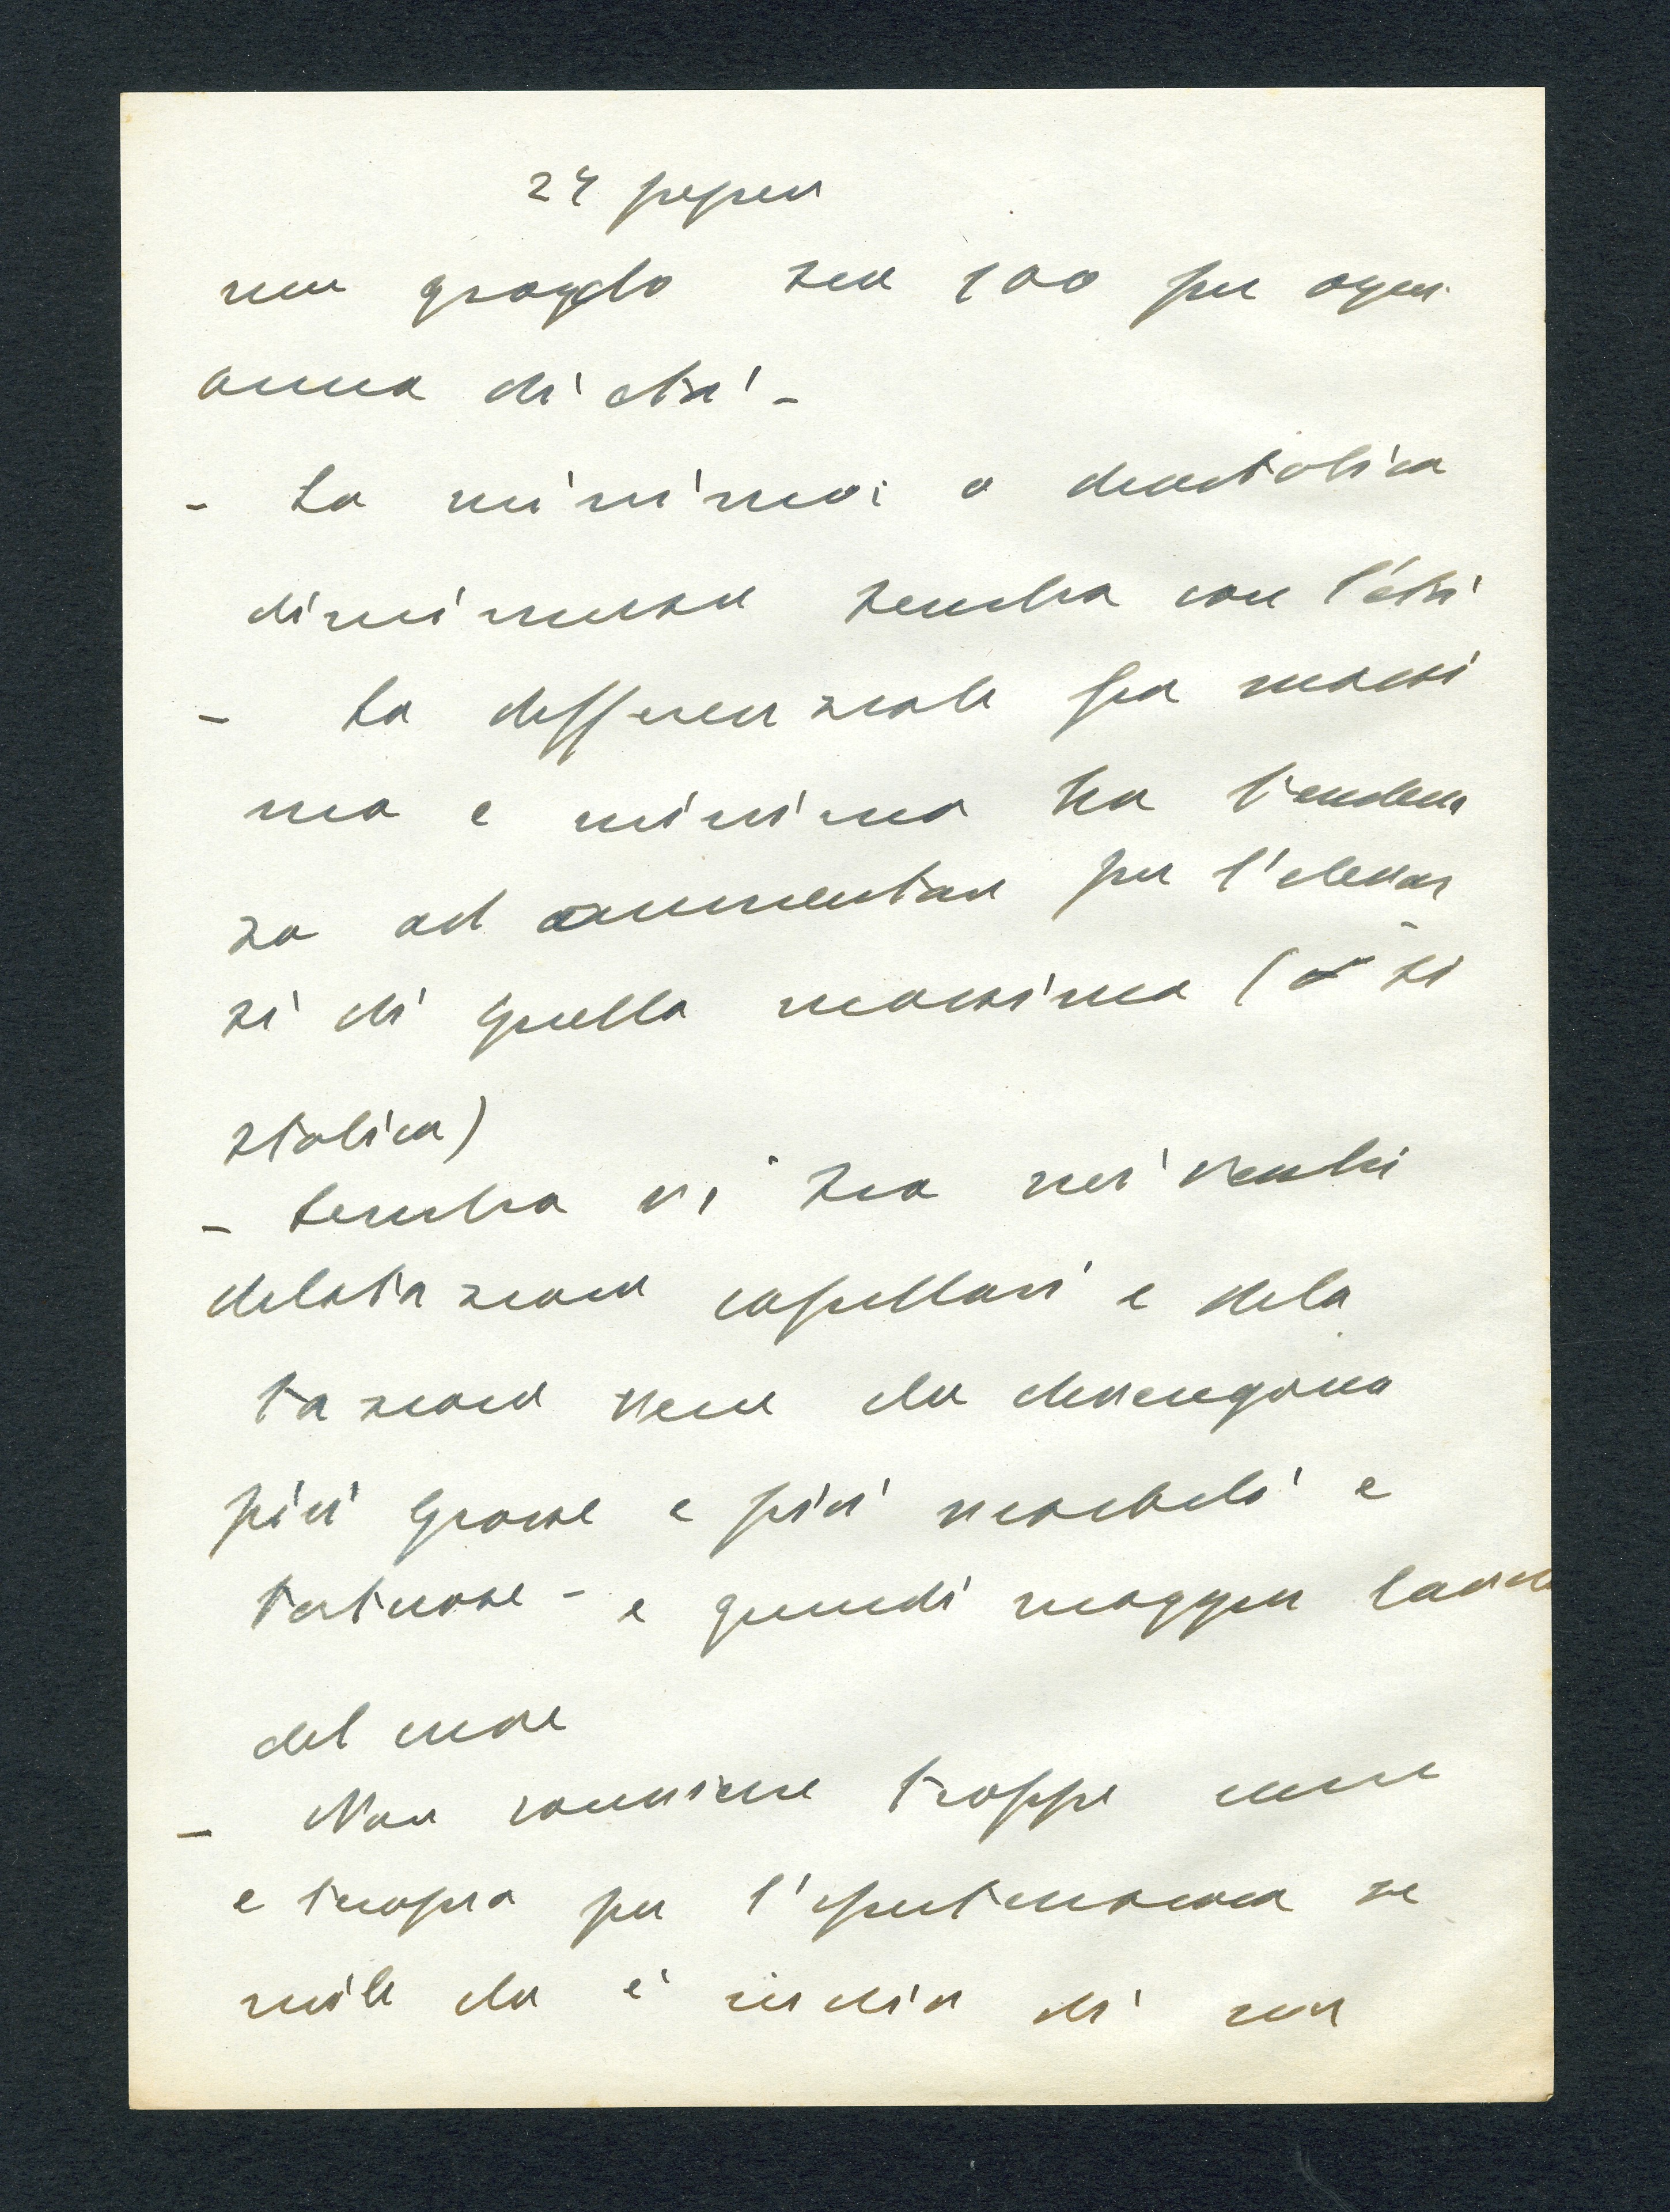 24
un grado su 100 per ogni
anno di età -
- La minima o diastolica
diminuisce sembra con l'età
- La differenziale fra massi
ma e minima ha tenden
za ad aumentare per l'elevar
si di quella massima (o si
stolica)
- Sembra vi sia nei vecchi
dilatazione capillari e dila
tazione vene che divengono
più grosse e più e
tortuose - e quindi maggior lavoro
del cuore
- Non conviene troppe cure
e troppo per l'ipertensione se
nile che è indice di una